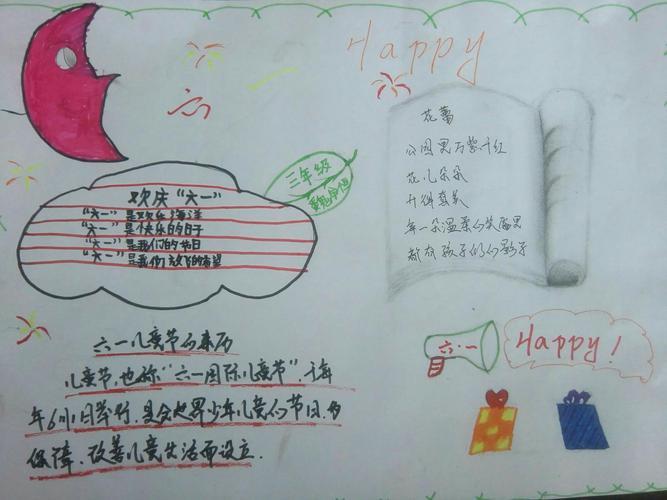 Happy
六一
三年级
欢庆“六一”
“六一”是欢乐海洋
“六一”是快乐的日子
“六一”是我们的节日
“六一”是我们放飞的希望
花蕾
公园里万紫千红
花儿朵朵
升得真美
每一朵温柔的笑靥里
都有孩子们的影子
六一儿童节的来历
儿童节,也称“六一国际儿童节”于每
年6月1日举行,是全世界少年儿童的节日,为
保障、改善儿童生活而设立.
六·一
Happy!